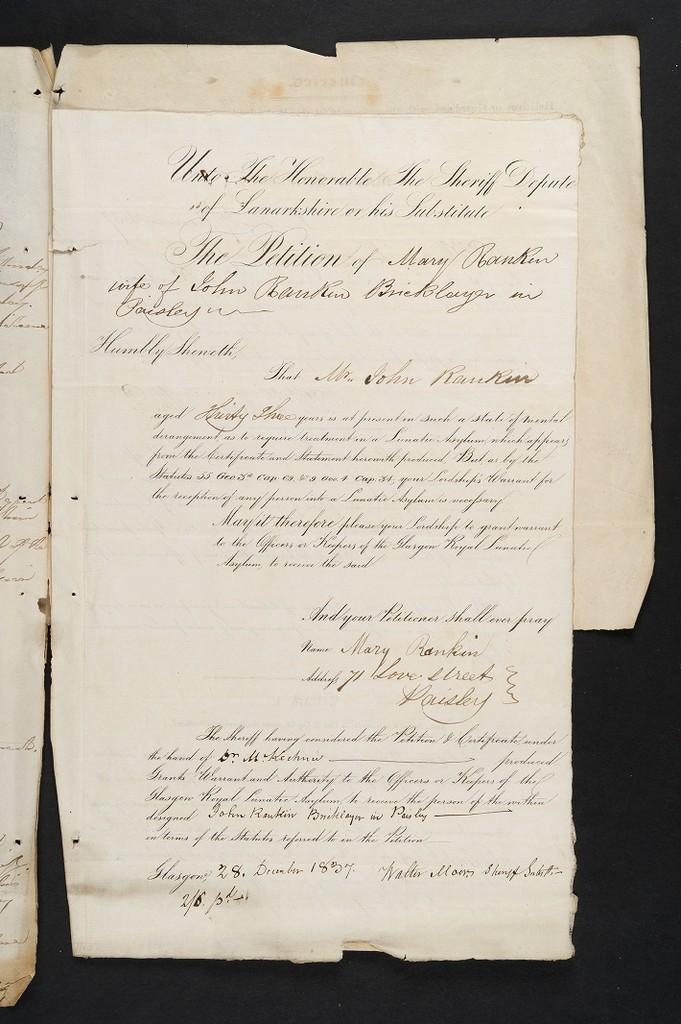 Unto The Honorable The Sheriff Depute
of Lanarkshire or his Substitute
The Petition of Mary Rankin
wife of John Rankin Bricklayer in
Paisley
Humbly Sheweth,
That Mr. John Rankin
aged Thirty Three years is at present in such a state of mental
derangement as to require treatment in a Lunatic Asylum, which appears
from the Certificate and Statement herewith produced, But as by the
Statutes 55 Geo. 3d Cap. 69. & 9 Geo. 4 Cap. 34, your Lordship's Warrant for
the reception of any person into a Lunatic Asylum is necessary
May it therefore please your Lordship to grant warrant
to the Officers or Keepers of the Glasgow Royal Lunatic
Asylum, to receive the said
And your Petitioner shall ever pray
Name Mary Rankin
Address 71 Love Street
Paisley
The Sheriff having considered the Petition & Certificate, under
the hand of Dr. McKechnie produced
Grants Warrant and Authority to the Officers or Keepers of the
Glasgow Royal Lunatic Asylum, to receive the person of the within
designed John Rankin Bricklayer in Paisley
in terms of the Statutes referred to in the Petition
Glasgow, 28. December 1837. Walter Moir, Sheriff Substt.
2/6. pd.